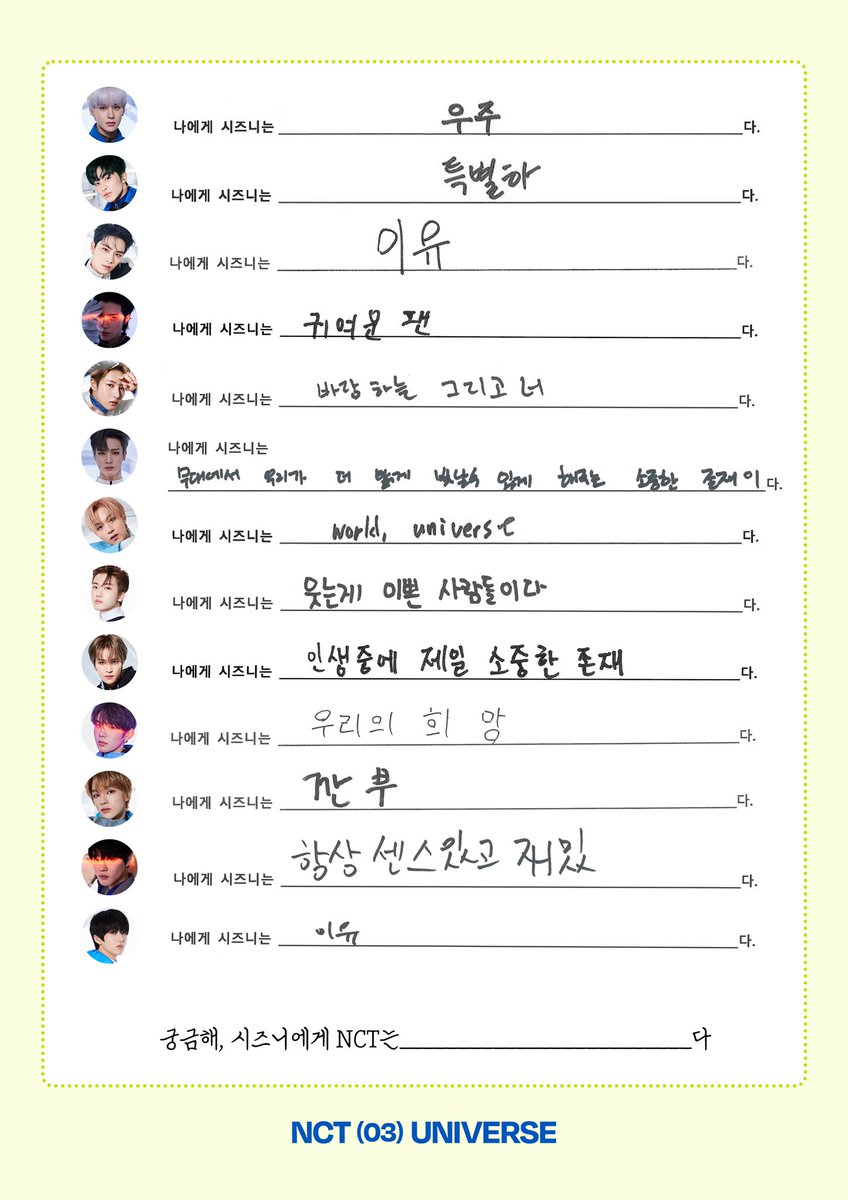 나에게 시즈니는 우주 다.
나에게 시즈니는 특별하 다.
나에게 시즈니는 이유 다.
나에게 시즈니는 귀여운 팬 다.
나에게 시즈니는 바람 하늘 그리고 너 다.
나에게 시즈니는
무대에서 우리가 더 밝게 빛날수 있게 해주는 소중한 존재이 다.
나에게 시즈니는 world, universe 다.
나에게 시즈니는 웃는게 이쁜 사람들이다 다.
나에게 시즈니는 인생중에 제일 소중한 존재 다.
나에게 시즈니는 우리의 희망 다.
나에게 시즈니는 깐부 다.
나에게 시즈니는 항상 센스있고 재밌 다.
나에게 시즈니는 이유 다.
궁금해, 시즈니에게 NCT는 다
NCT (03) UNIVERSE